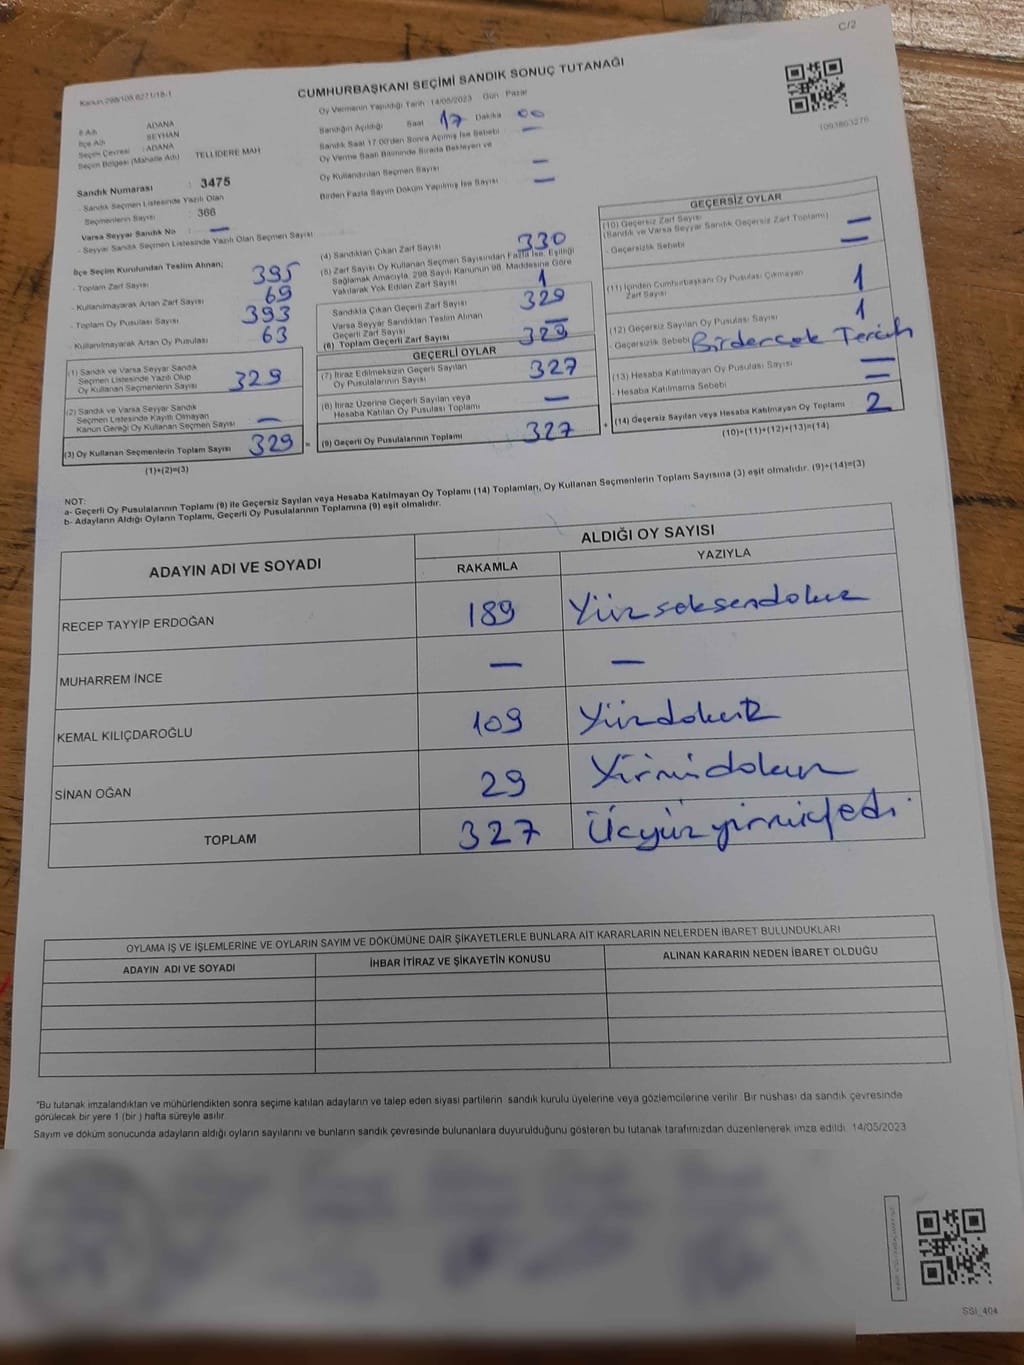 C/2
Kanun:298/105 6271/18-1
CUMHURBAŞKANI SEÇİMİ SANDIK SONUÇ TUTANAĞI
1093863276
İl Adı : ADANA
İlçe Adı : SEYHAN
Seçim Çevresi : ADANA
Seçim Bölgesi (Mahalle Adı) : TELLİDERE MAH
Sandık Numarası : 3475
- Sandık Seçmen Listesinde Yazılı Olan
Seçmenlerin Sayısı : 366
Varsa Seyyar Sandık No : —
- Seyyar Sandık Seçmen Listesinde Yazılı Olan Seçmen Sayısı
İlçe Seçim Kurulundan Teslim Alınan;
- Toplam Zarf Sayısı 395
- Kullanılmayarak Artan Zarf Sayısı 69
- Toplam Oy Pusulası Sayısı 393
- Kullanılmayarak Artan Oy Pusulası 63
(1) Sandık ve Varsa Seyyar Sandık
Seçmen Listesinde Yazılı Olup
Oy Kullanan Seçmenlerin Sayısı 329
(2) Sandık ve Varsa Seyyar Sandık
Seçmen Listesinde Kayıtlı Olmayan
Kanun Gereği Oy Kullanan Seçmen Sayısı —
(3) Oy Kullanan Seçmenlerin Toplam Sayısı 329 =
(1)+(2)=(3)
Oy Vermenin Yapıldığı Tarih : 14/05/2023 Gün : Pazar
Sandığın Açıldığı Saat 17 Dakika 00
Sandık Saat 17.00'den Sonra Açılmış İse Sebebi —
Oy Verme Saati Bitiminde Sırada Bekleyen ve
Oy Kullandırılan Seçmen Sayısı —
Birden Fazla Sayım Döküm Yapılmış İse Sayısı —
(4) Sandıktan Çıkan Zarf Sayısı 330
(5) Zarf Sayısı Oy Kullanan Seçmen Sayısından Fazla İse, Eşitliği
Sağlamak Amacıyla, 298 Sayılı Kanunun 98. Maddesine Göre
Yakılarak Yok Edilen Zarf Sayısı 1
Sandıkta Çıkan Geçerli Zarf Sayısı 329
Varsa Seyyar Sandıktan Teslim Alınan
Geçerli Zarf Sayısı —
(6) Toplam Geçerli Zarf Sayısı 329
GEÇERLİ OYLAR
(7) İtiraz Edilmeksizin Geçerli Sayılan
Oy Pusulalarının Sayısı 327
(8) İtiraz Üzerine Geçerli Sayılan veya
Hesaba Katılan Oy Pusulası Toplamı —
(9) Geçerli Oy Pusulalarının Toplamı 327 +
GEÇERSİZ OYLAR
(10) Geçersiz Zarf Sayısı
(Sandık ve Varsa Seyyar Sandık Geçersiz Zarf Toplamı) —
- Geçersizlik Sebebi —
(11) İçinden Cumhurbaşkanı Oy Pusulası Çıkmayan
Zarf Sayısı 1
(12) Geçersiz Sayılan Oy Pusulası Sayısı 1
- Geçersizlik Sebebi Birdençok Tercih
(13) Hesaba Katılmayan Oy Pusulası Sayısı —
- Hesaba Katılmama Sebebi —
(14) Geçersiz Sayılan veya Hesaba Katılmayan Oy Toplamı 2
(10)+(11)+(12)+(13)=(14)
NOT:
a- Geçerli Oy Pusulalarının Toplamı (9) ile Geçersiz Sayılan veya Hesaba Katılmayan Oy Toplamı (14) Toplamları, Oy Kullanan Seçmenlerin Toplam Sayısına (3) eşit olmalıdır. (9)+(14)=(3)
b- Adayların Aldığı Oyların Toplamı, Geçerli Oy Pusulalarının Toplamına (9) eşit olmalıdır.
ADAYIN ADI VE SOYADI
ALDIĞI OY SAYISI
RAKAMLA YAZIYLA
RECEP TAYYİP ERDOĞAN 189 Yüzseksendokuz
MUHARREM İNCE — —
KEMAL KILIÇDAROĞLU 109 Yüzdokuz
SİNAN OĞAN 29 Yirmidokuz
TOPLAM 327 Üçyüzyirmiyedi
OYLAMA İŞ VE İŞLEMLERİNE VE OYLARIN SAYIM VE DÖKÜMÜNE DAİR ŞİKAYETLERLE BUNLARA AİT KARARLARIN NELERDEN İBARET BULUNDUKLARI
ADAYIN ADI VE SOYADI İHBAR İTİRAZ VE ŞİKAYETİN KONUSU ALINAN KARARIN NEDEN İBARET OLDUĞU
*Bu tutanak imzalandıktan ve mühürlendikten sonra seçime katılan adayların ve talep eden siyasi partilerin sandık kurulu üyelerine veya gözlemcilerine verilir. Bir nüshası da sandık çevresinde
görülecek bir yere 1 (bir ) hafta süreyle asılır.
Sayım ve döküm sonucunda adayların aldığı oyların sayılarını ve bunların sandık çevresinde bulunanlara duyurulduğunu gösteren bu tutanak tarafımızdan düzenlenerek imza edildi. 14/05/2023
SSI_404